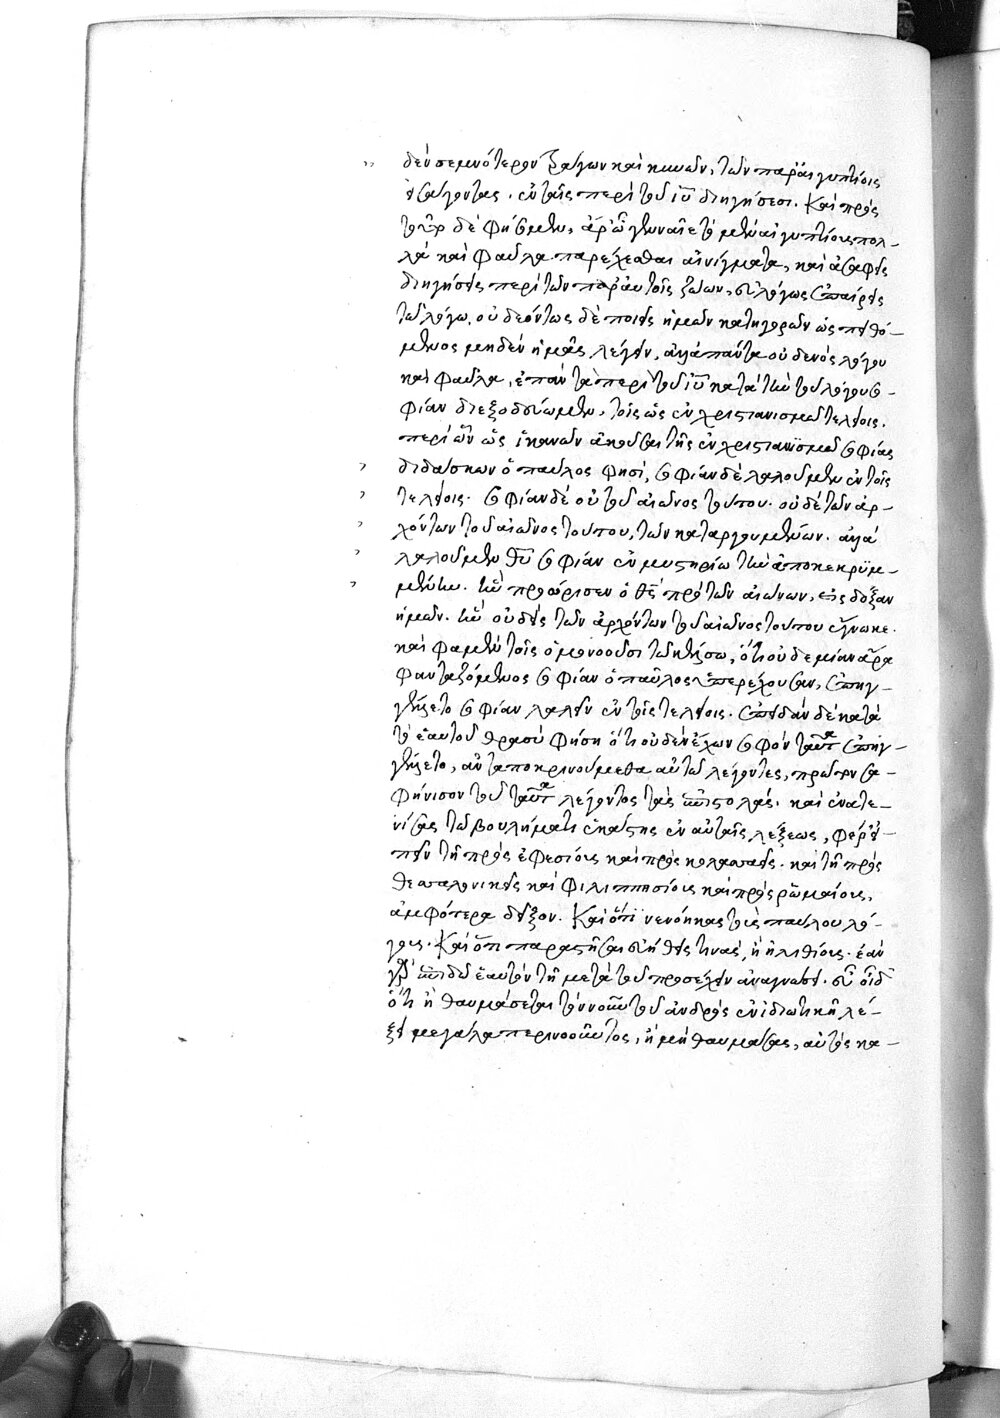 δὲν σεμνότερον τράγων καὶ κυνῶν, τῶν παρ' αἰγυπτίοις
εἰσάγοντας. ἐν ταῖς περὶ τοῦ ἰῦ διηγήσεσι. Καὶ πρὸς
τοῦτο δὲ φήσομεν, ἆρ' ὦ γενναῖε τὸ μὲν αἰγυπτίους πολ-
λὰ καὶ φαῦλα παρέχεσθαι αἰνίγματα, καὶ ἀσαφεῖς
διηγήσεις περὶ τῶν παρ' αὐτοῖς ζώων, εὐλόγως ἐπαίρεις
τῷ λόγῳ, οὐ δεόντως δὲ ποιεῖς ἡμῶν κατηγορῶν ὡς πειθό-
μενος μηδὲν ἡμᾶς λέγειν, ἀλλὰ πάντα οὐδενὸς λόγου
καὶ φαῦλα, ἐπὰν τὰ περὶ τοῦ ἰῦ κατὰ τὴν τοῦ λόγου σο-
φίαν διεξοδεύωμεν, τοῖς ὡς ἐν χριστιανισμῷ τελείοις.
περὶ ὧν ὡς ἱκανῶν ἀκούειν τῆς ἐν χριστιανϊσμῷ σοφίας
διδάσκων ὁ παῦλος φησὶ, σοφίαν δὲ λαλοῦμεν ἐν τοῖς
τελείοις. σοφίαν δὲ οὐ τοῦ αἰῶνος τούτου. οὐδὲ τῶν ἀρ-
χόντων τοῦ αἰῶνος τούτου, τῶν καταργουμένων. ἀλλὰ
λαλοῦμεν θῦ σοφίαν ἐν μυστηρίῳ τὴν ἀποκεκρυμ-
μένην. ἣν προώρισεν ὁ θς πρὸ τῶν αἰώνων, εἰς δόξαν
ἡμῶν. ἣν οὐδεὶς τῶν ἀρχόντων τοῦ αἰῶνος τούτου ἔγνωκε.
καὶ φαμὲν τοῖς ὁμονοοῦσι τῷ κέλσῳ, ὅτι οὐδεμίαν ἆρα
φανταζόμενος σοφίαν ὁ παῦλος ὑπερέχουσαν, ἐπηγ-
γέλλετο σοφίαν λαλεῖν ἐν τοῖς τελείοις. ἐπειδὰν δὲ κατὰ
τὸ ἑαυτοῦ θρασὺ φήσῃ ὅτι οὐδὲν ἔχων σοφὸν ταῦτα ἐπηγ-
γέλλετο, ἀνταποκρινούμεθα αὐτῷ λέγοντες, πρῶτον σα-
φήνισον τοῦ ταῦτα λέγοντος τὰς ἐπιστολάς. καὶ ἐνατε-
νίσας τῷ βουλήματι ἑκάστης ἐν αὐταῖς λέξεως, φέρ' εἰ-
πεῖν τῇ πρὸς ἐφεσίους καὶ πρὸς κολασσαεῖς. καὶ τῇ πρὸς
θεσσαλονικεῖς καὶ φιλιππησίους καὶ πρὸς ῥωμαίους,
ἀμφότερα δεῖξον. Καὶ ὅτι νενόηκας τοὺς παύλου λό-
γους. Καὶ ὅτι παραστῆσαι εὐήθεις τινὰς, ἢ ἠλιθίους. ἐὰν
γὰρ ἐπιδῷ ἑαυτὸν τῇ μετὰ τοῦ προσέχειν ἀναγνώσει. εὖ οἶδ'
ὅτι ἢ θαυμάσεται τὸν νοῦν τοῦ ἀνδρὸς ἐν ἰδιωτικῇ λέ-
ξει μεγάλα περινοοῦντος, ἢ μὴ θαυμάσας, αὐτὸς κα-